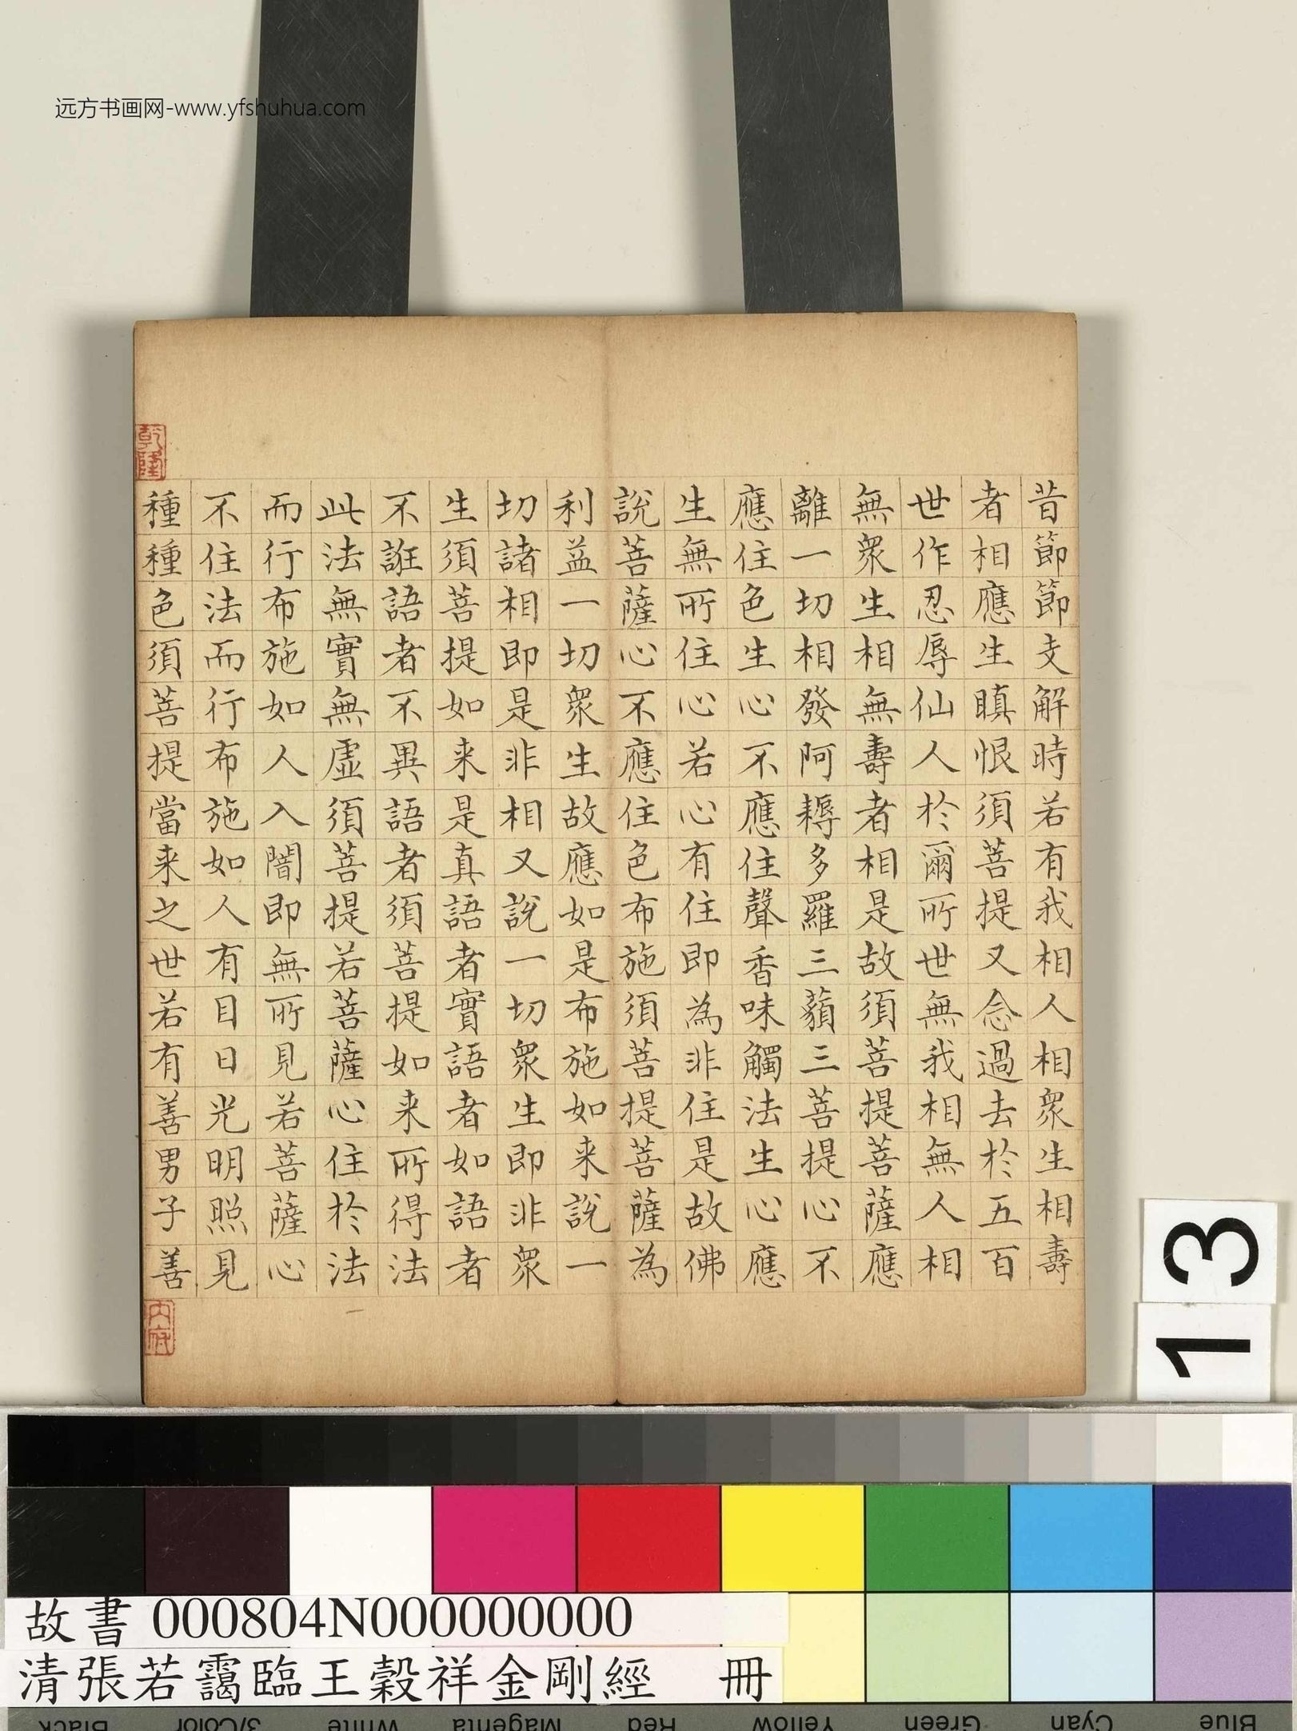 远方书画网-www.yfshuhua.com
昔節節支解時若有我相人相衆生相壽
者相應生瞋恨須菩提又念過去於五百
世作忍辱仙人於爾所世無我相無人相
無衆生相無壽者相是故須菩提菩薩應
離一切相發阿耨多羅三藐三菩提心不
應住色生心不應住聲香味觸法生心應
生無所住心若心有住即為非住是故佛
說菩薩心不應住色布施須菩提菩薩為
利益一切衆生故應如是布施如来說一
切諸相即是非相又說一切衆生即非衆
生須菩提如来是真語者實語者如語者
不誑語者不異語者須菩提如来所得法
此法無實無虛須菩提若菩薩心住於法
而行布施如人入闇即無所見若菩薩心
不住法而行布施如人有目日光明照見
種種色須菩提當来之世若有善男子善
乾隆
内府
13
故書 000804N000000000
清張若靄臨王穀祥金剛經 冊
Black 3/Color White Magenta Red Yellow Green Cyan Blue